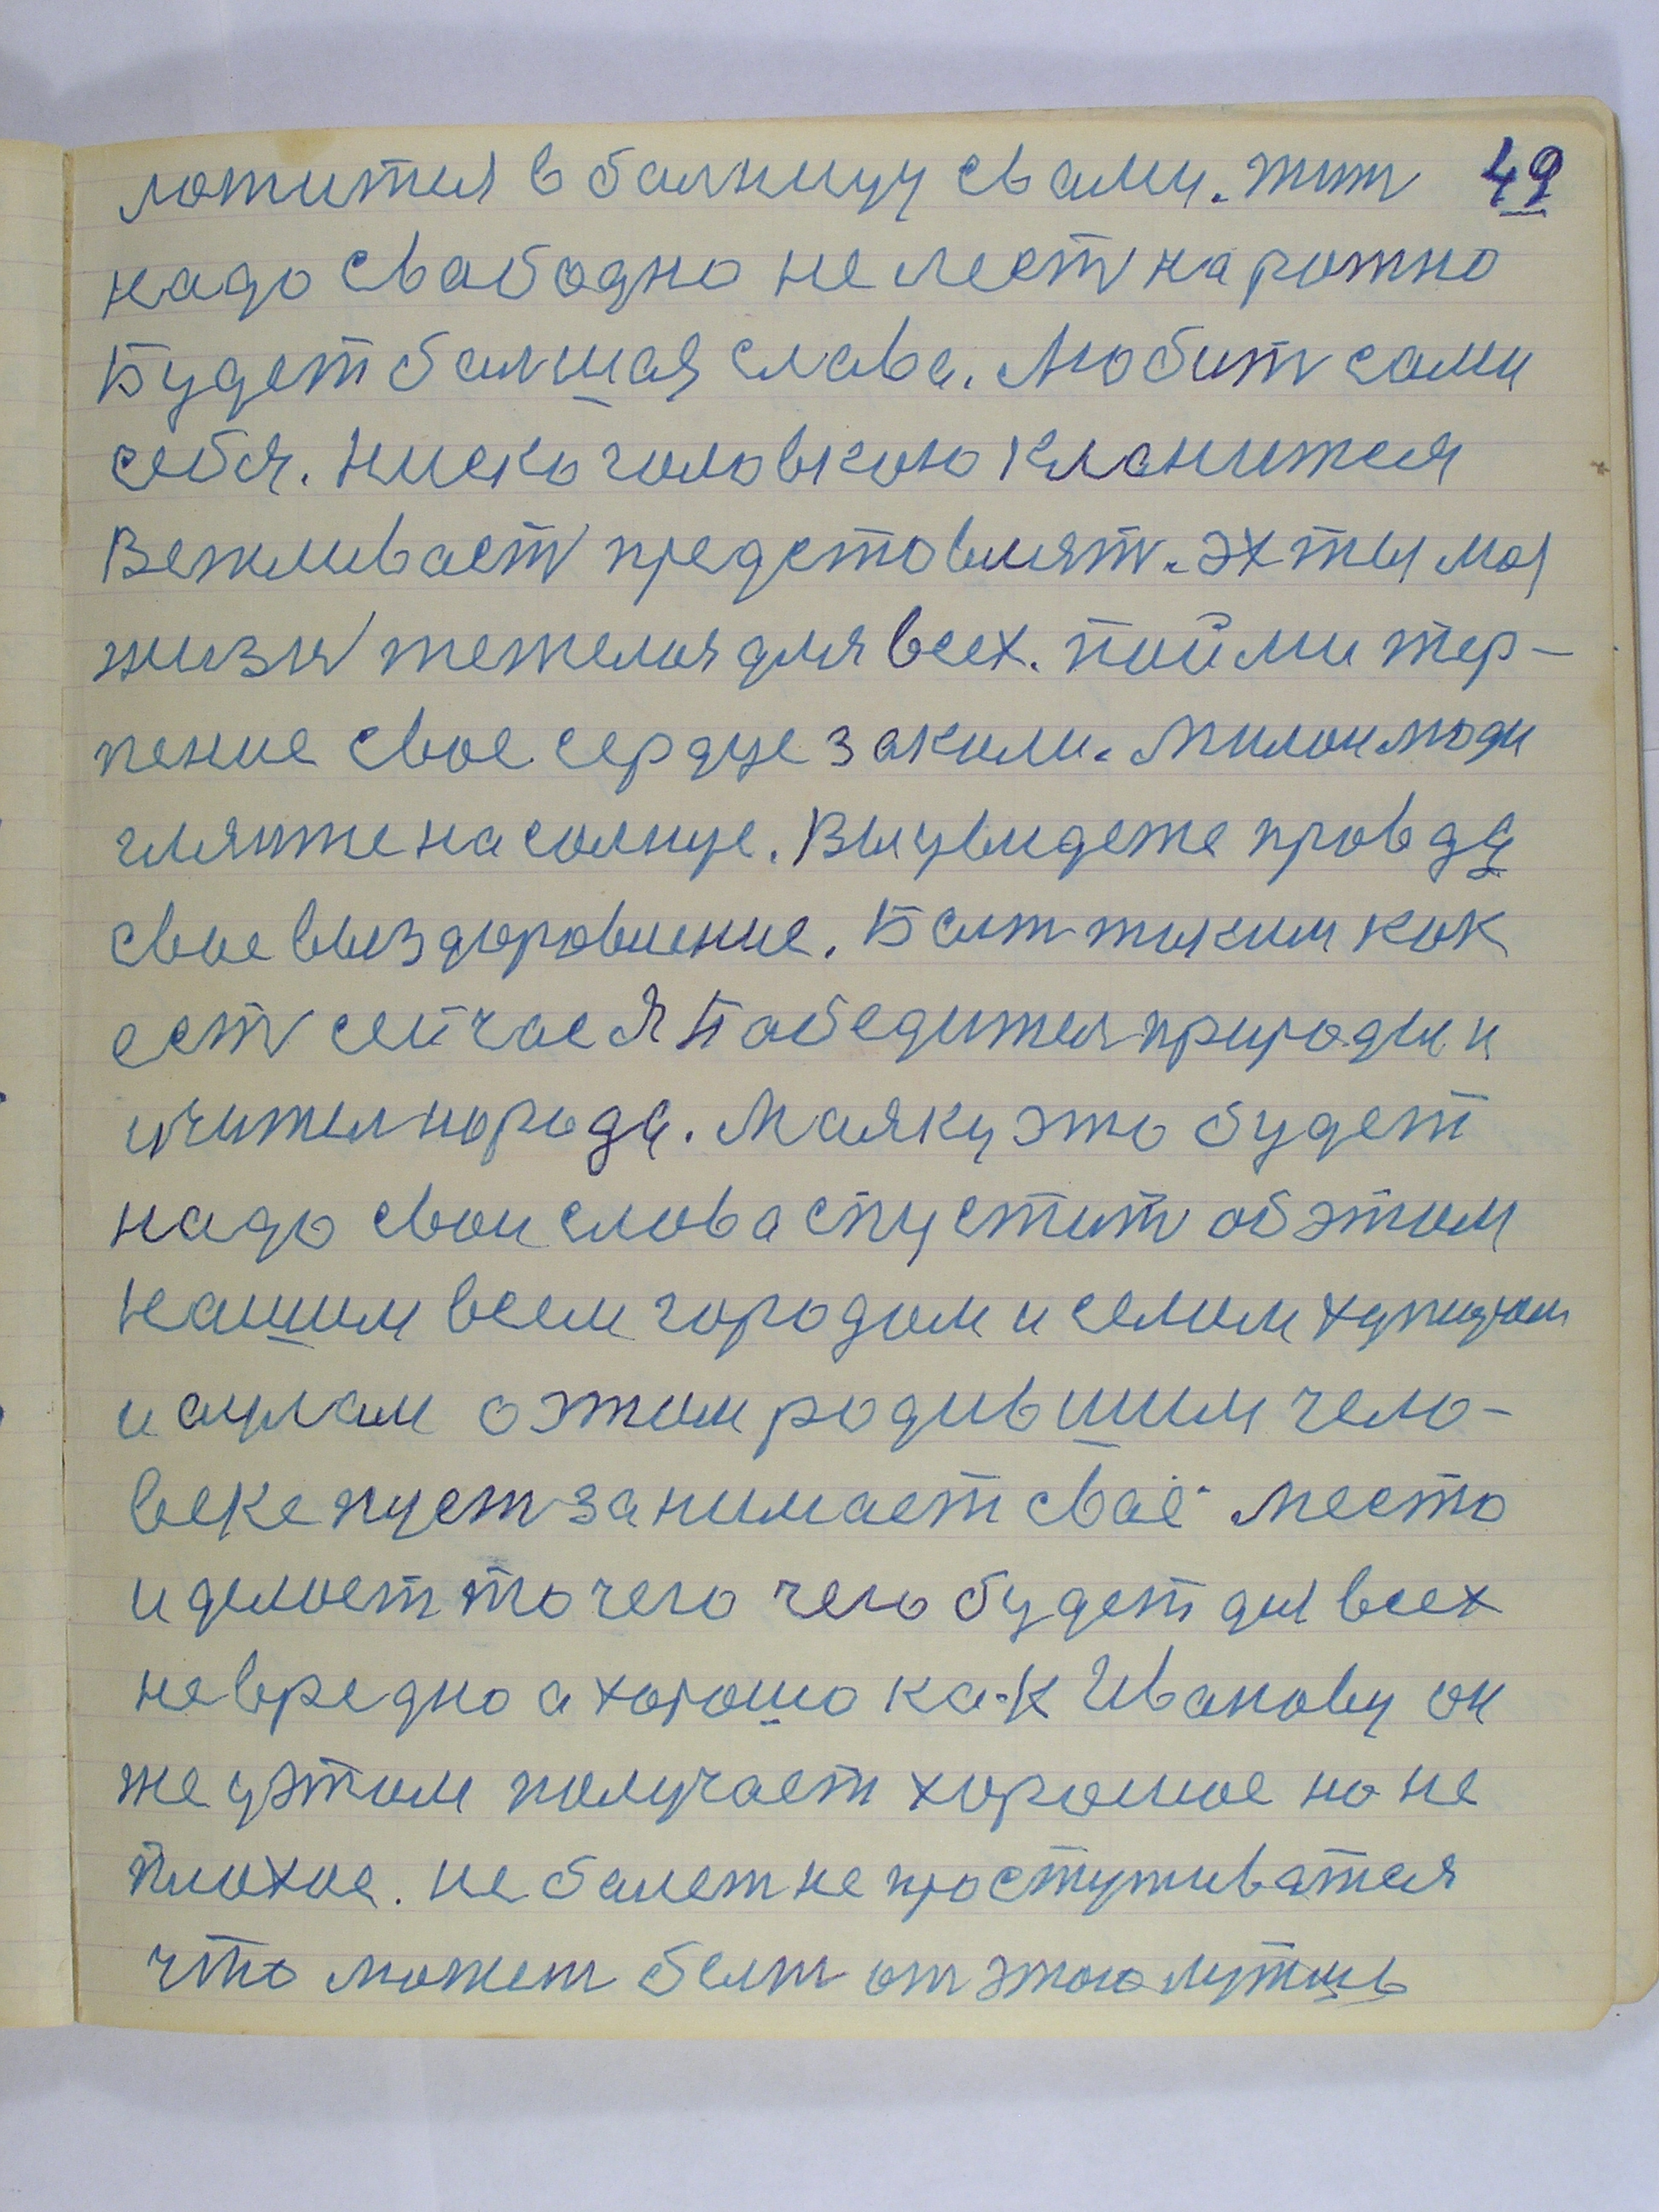 ложится в балницу свами. жит 49
надо свабодно не лест на рожно
Будет балшая слава. Любит сами
себя. Ниско головкою кланится
Вежливаст представлят. эх ты моя
жизн тежелая для всех. пойми тер-
пение свое сердце закали. Милои люди
гляните на солнце. Вы увидете правду
свое выздоровление. Быт таким как
ест сейчас Я Победител природы и
учител народа. Маяку это будет
надо свои слова спустит об этом
нашим всем городам и селам
и аулам о этом родившим чело-
веке пуст занимает сваё место
и делает то чего чего будет для всех
невредно а хорошо как Иванову он
же у этом получает хорошое но не
плохое. не балет не простуживатся
что может быт от этого лутшь